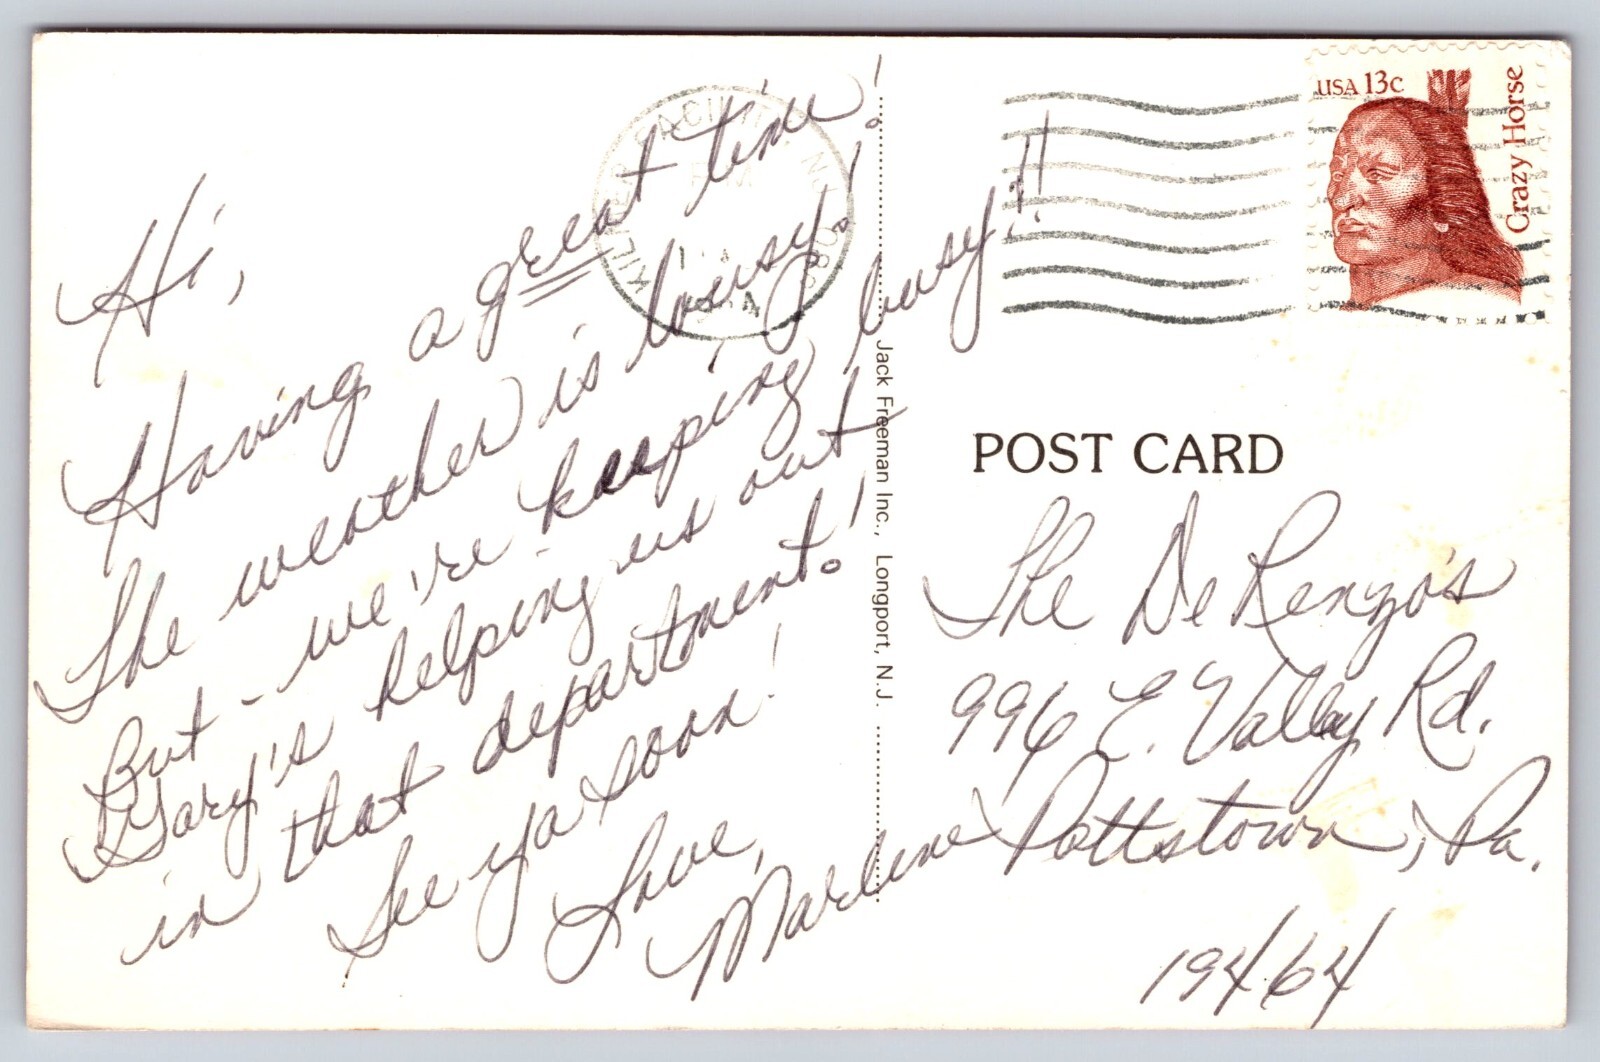 Hi,
Having a great time!
The weather is lousy!
But - we're keeping busy!!
Gary's helping us out
in that department!
See ya soon!
Love,
Marlene
Jack Freeman Inc., Longport, N.J.
USA 13c
Crazy Horse
POST CARD
The DeRenzo's
996 E. Valley Rd.
Pottstown, Pa.
19464